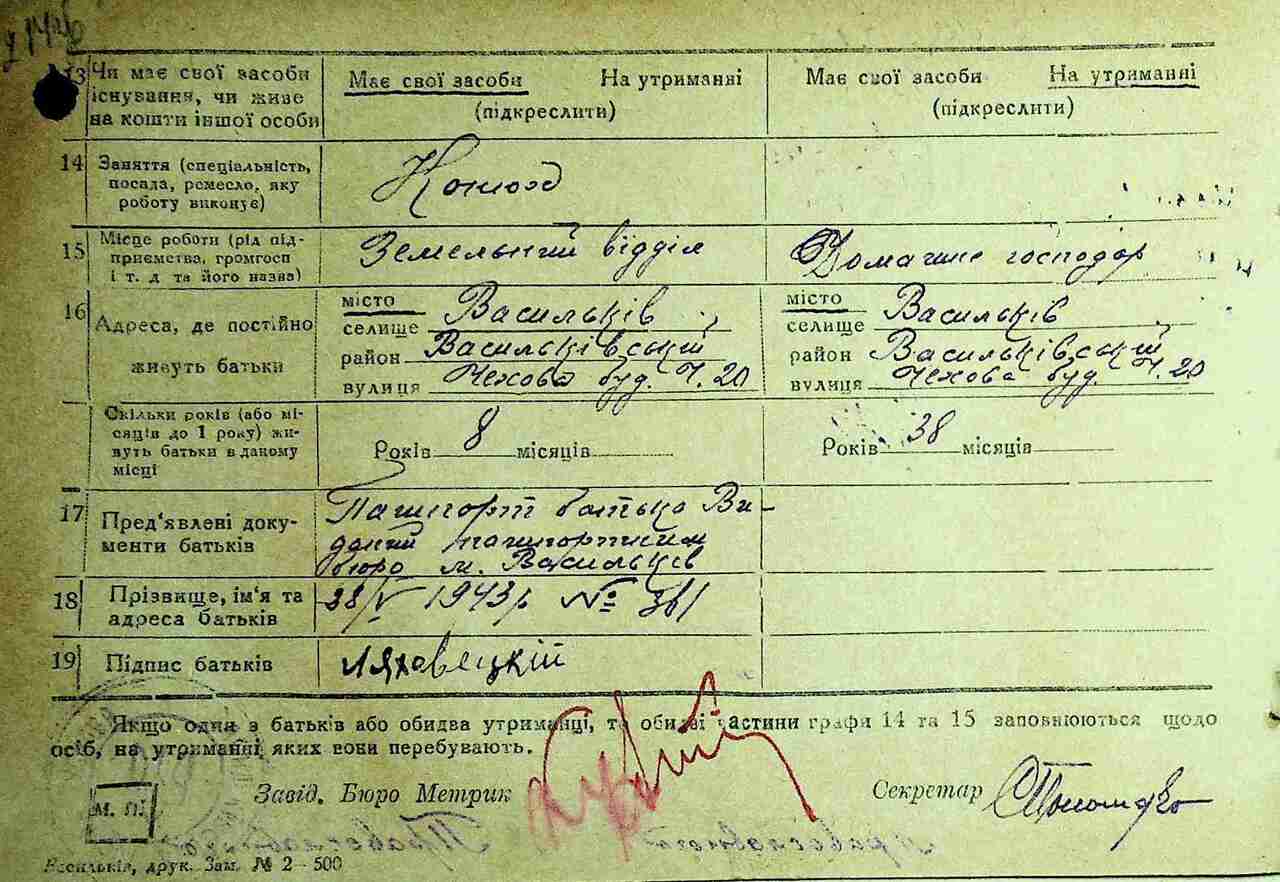 13 Чи має свої засоби існування, чи живе на кошти іншої особи
Має свої засоби На утриманні
(підкреслити)
Має свої засоби На утриманні
(підкреслити)
14 Заняття (спеціальність, посада, ремесло, яку роботу виконує)
Конюх
15 Місце роботи (рід підприємства, громгосп і т. д та його назва)
Земельний відділ
Домашнє господар
16 Адреса, де постійно живуть батьки
місто
селище Васильків
район Васильківський
вулиця Чехова буд. Ч. 20
місто
селище Васильків
район Васильківський
вулиця Чехова буд. Ч. 20
Скільки років (або місяців до 1 року) живуть батьки в даному місці
Років 8 місяців
Років 38 місяців
17 Пред'явлені документи батьків
Пашпорт батька Ви-
даний пашпортним
бюро м. Васильків
18 Прізвище, ім'я та адреса батьків
28/V 1943р №
19 Підпис батьків
Ляховецкій
Якщо один з батьків або обидва утриманці, то обидві частини графи 14 та 15 заповнюються щодо
осіб, на утриманні яких вони перебувають.
М. П.
Завід. Бюро Метрик
Секретар
Васильків, друк. Зам. № 2 – 500